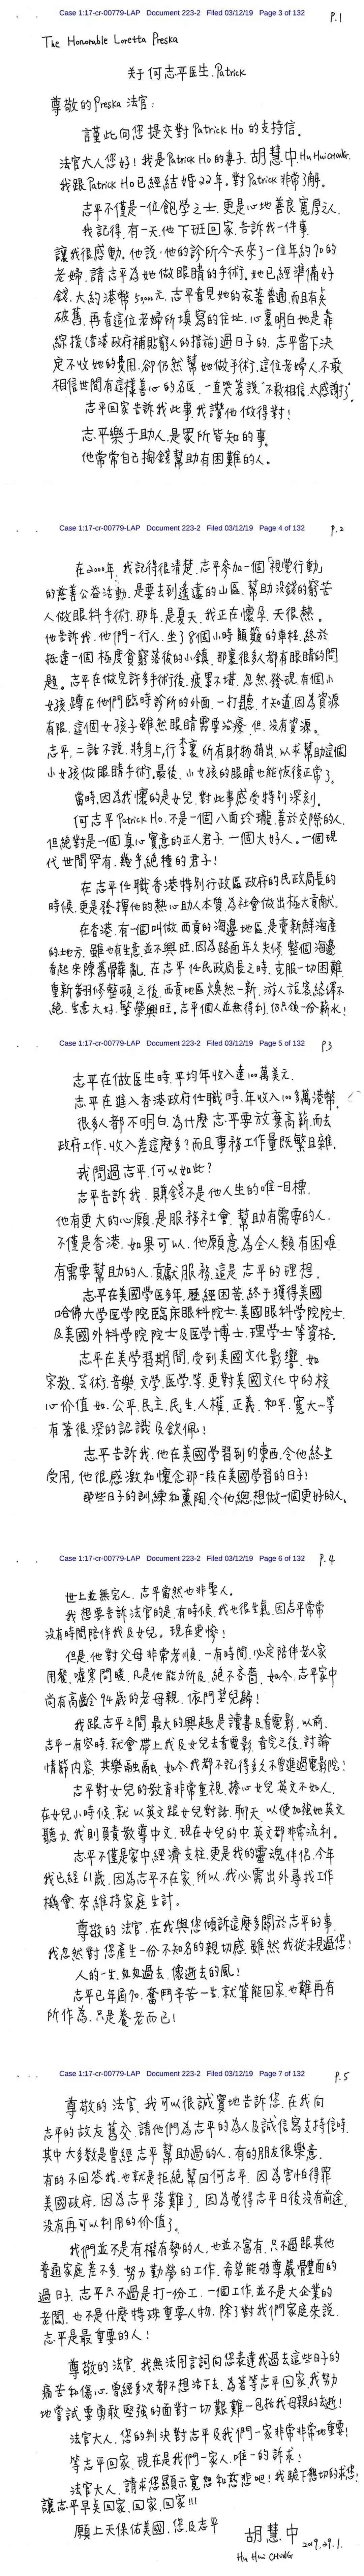 Case 1:17-cr-00779-LAP Document 223-2 Filed 03/12/19 Page 3 of 132
P.1
The Honorable Loretta Preska
关于 何志平医生. Patrick
尊敬的 Preska 法官:
謹此向您提交對 Patrick Ho 的支持信。
法官大人您好! 我是 Patrick Ho 的妻子. 胡慧中. Hu Hui CHUNG.
我跟 Patrick Ho 已經結婚22年。對 Patrick 非常了解。
志平不僅是一位飽學之士. 更是心地善良寬厚之人.
我記得. 有一天. 他下班回家. 告訴我一件事.
讓我很感動。他說. 他的診所今天來了一位年約70的
老婦. 請志平為她做眼睛的手術. 她已經準備好
錢. 大約港幣50000元. 志平看見她的衣著普通. 而且有点
破舊. 再看這位老婦所填寫的住址. 心裏明白她是靠
綜援 (香港政府補貼窮人的措施) 過日子的. 志平當下決
定不收她的費用. 卻仍然幫她做手術. 這位老婦人. 不敢
相信世間有這樣善心的名医. 一直哭着說 "不敢相信. 太感謝了".
志平回家告訴我此事. 我讚他做得對!
志平樂于助人. 是眾所皆知的事。
他常常自己掏錢幫助有困難的人。
Case 1:17-cr-00779-LAP Document 223-2 Filed 03/12/19 Page 4 of 132
P.2
在2000年. 我記得很清楚. 志平參加一個「視覺行動」
的慈善公益活動. 是要去到遙遠的山區. 幫助沒錢的窮苦
人做眼科手術. 那年. 是夏天. 我正在懷孕. 天很熱。
他告訴我. 他們一行人. 坐了8個小時顛簸的車程. 終於
抵達一個極度貧窮落後的小鎮. 那裏很多人都有眼睛的問
題。志平在做完許多手術後. 疲累不堪. 忽然發現. 有個小
女孩. 蹲在他們臨時診所的外面. 一打聽. 才知道. 因為資源
有限. 這個女孩子雖然眼睛需要治療. 但. 没有資源。
志平. 二話不說. 將身上. 行李裏所有財物捐出. 以求幫助這個
小女孩做眼睛手術. 最後. 小女孩的眼睛也能恢復正常了。
當時. 因為我懷的是女兒. 對此事感受特別深刻。
何志平 Patrick Ho. 不是一個八面玲瓏. 善於交際的人.
但絕對是一個真心實意的正人君子. 一個大好人。一個現
代世間罕有. 幾乎絕種的君子!
在志平任職香港特別行政區政府的民政局長的
時候. 更是發揮他的熱心助人本質. 為社會做出極大貢献。
在香港. 有一個叫做西貢的海邊地區. 是賣新鮮海產
的地方. 雖也有生意. 並不興旺. 因為路面年久失修. 整個海邊
看起來陳舊髒亂. 在志平任民政局長之時. 克服一切困難.
重新翻修整頓. 之後. 西貢地區大焕然一新. 游人旅客絡繹不
絕. 生意大好. 繁榮興旺。志平個人並無得利. 仍只領一份薪水!
Case 1:17-cr-00779-LAP Document 223-2 Filed 03/12/19 Page 5 of 132
P.3
志平在做医生時. 平均年收入達100萬美元.
志平在進入香港政府任職時. 年收入100多萬港幣.
很多人都不明白. 為什麼志平要放棄高薪. 而去
政府工作. 收入差這麼多? 而且事務工作量既繁且雜.
我問過志平. 何以如此?
志平告訴我. 賺錢不是他人生的唯一目標.
他有更大的心願. 是服務社會. 幫助有需要的人.
不僅是香港. 如果可以. 他願意為全人類有困难
有需要幫助的人. 貢獻服務. 這是志平的理想.
志平在美國學医多年. 歷經困苦. 終于獲得美國
哈佛大学医学院臨床眼科院士. 美國眼科学院院士.
及美國外科学院院士及医学博士. 理学士等資格。
志平在美学習期間. 受到美國文化影響. 如
宗教. 芸術. 音樂. 文學. 医学. 等. 更對美國文化中的核
心价值如. 公平. 民主. 民生. 人權. 正義. 和平. 寬大~等
有著很深的認識及欽佩!
志平告訴我. 他在美國學習到的東西. 令他終生
受用. 他很感激和懷念那一段在美國學習的日子!
那些日子的訓練和薰陶. 令他總想做一個更好的人.
Case 1:17-cr-00779-LAP Document 223-2 Filed 03/12/19 Page 6 of 132
P.4
世上並無完人. 志平當然也非聖人。
我想要告訴法官的是. 有時候. 我也很生氣. 因志平常常
沒有時間陪伴我及女兒。現在更慘!
但是. 他對父母非常孝順. 一有時間. 必定陪伴老人家
用餐. 噓寒問暖. 凡是他能力所及. 絕不吝嗇. 如今. 志平家中
尚有高齡94歲的老母親. 依門望兒歸!
我跟志平之間最大的興趣是讀書及看電影. 以前.
志平一有空時. 就會帶上我及女兒去看電影. 看完之後. 討論
情節内容. 其樂融融. 如今我都不記得多久不曾進過電影院!
志平對女兒的教育非常重視. 擔心女兒英文不如人.
在女兒小時候. 就以英文跟女兒對話. 聊天. 以便加強她英文
聽力. 我則負責教導中文. 現在女兒的中. 英文都非常流利。
志平不僅是家中經濟支柱. 更是我的靈魂伴侶. 今年
我已經61歲. 因為志平不在家. 所以. 我必需出外尋找工作
機會. 來維持家庭生計。
尊敬的法官. 在我與您傾訴這麼多關於志平的事.
我忽然對您產生一份不知名的親切感. 雖然我從未見過您!
人的一生. 匆匆過去. 像逝去的風!
志平已年屆70. 奮鬥辛苦一生. 就算能回家. 也難再有
所作為. 只是養老而已!
Case 1:17-cr-00779-LAP Document 223-2 Filed 03/12/19 Page 7 of 132
P.5
尊敬的法官. 我可以很誠實地告訴您. 在我向
志平的故友舊交. 請他們為志平的為人及誠信寫支持信時.
其中大多數是曾經志平幫助過的人. 有的朋友很樂意.
有的不回答我. 也就是拒絕幫回何志平. 因為害怕得罪
美國政府. 因為志平落難了. 因為覺得志平日後沒有前途.
没有再可以利用的价值了。
我們並不是有權有勢的人. 也並不富有. 只不過跟其他
普通家庭差不多. 努力勤勞的工作. 希望能夠尊嚴體面的
過日子. 志平只不過是打一份工. 一個工作. 並不是大企業的
老闆. 也不是什麼特殊重要人物. 除了對我們家庭來說.
志平是最重要的人!
尊敬的法官. 我無法用言詞向您表達我過去這些日子的
痛苦和傷心. 曾經多次都不想活下去. 為著等志平回家. 我努力
地嘗試要勇敢堅強的面對一切艱難—包括我母親的去逝!
法官大人. 您的判決對志平及我們一家非常非常地重要!
等志平回家. 現在是我們一家人. 唯一的訴求!
法官大人. 請求您顯示寬恕和慈悲吧! 我跪下懇切的求您!
讓志平早点回家. 回家. 回家!!!
願上天保佑美國. 您. 及志平
胡慧中 2019.29.1.
Hu Hui CHUNG